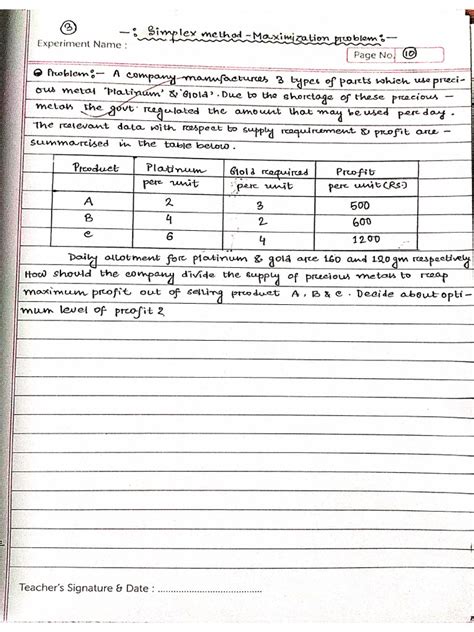 ③
-: Simplex method - Maximization problem :-
Experiment Name :
Page No. ⑩
Problem :- A company manufactures 3 types of parts which use preci-
ous metal 'Platinum' & 'Gold'. Due to the shortage of these precious -
metals the govt. regulated the amount that may be used per day.
The relevant data with respect to supply requirement & profit are -
summarised in the table below.
Product Platinum per unit Gold required per unit Profit per unit (RS.)
A 2 3 500
B 4 2 600
C 6 4 1200
Daily allotment for platinum & gold are 160 and 120 gm respectively
How should the company divide the supply of precious metals to reap
maximum profit out of selling product A, B & C. Decide about opti-
mum level of profit ?
Teacher's Signature & Date : ........................................